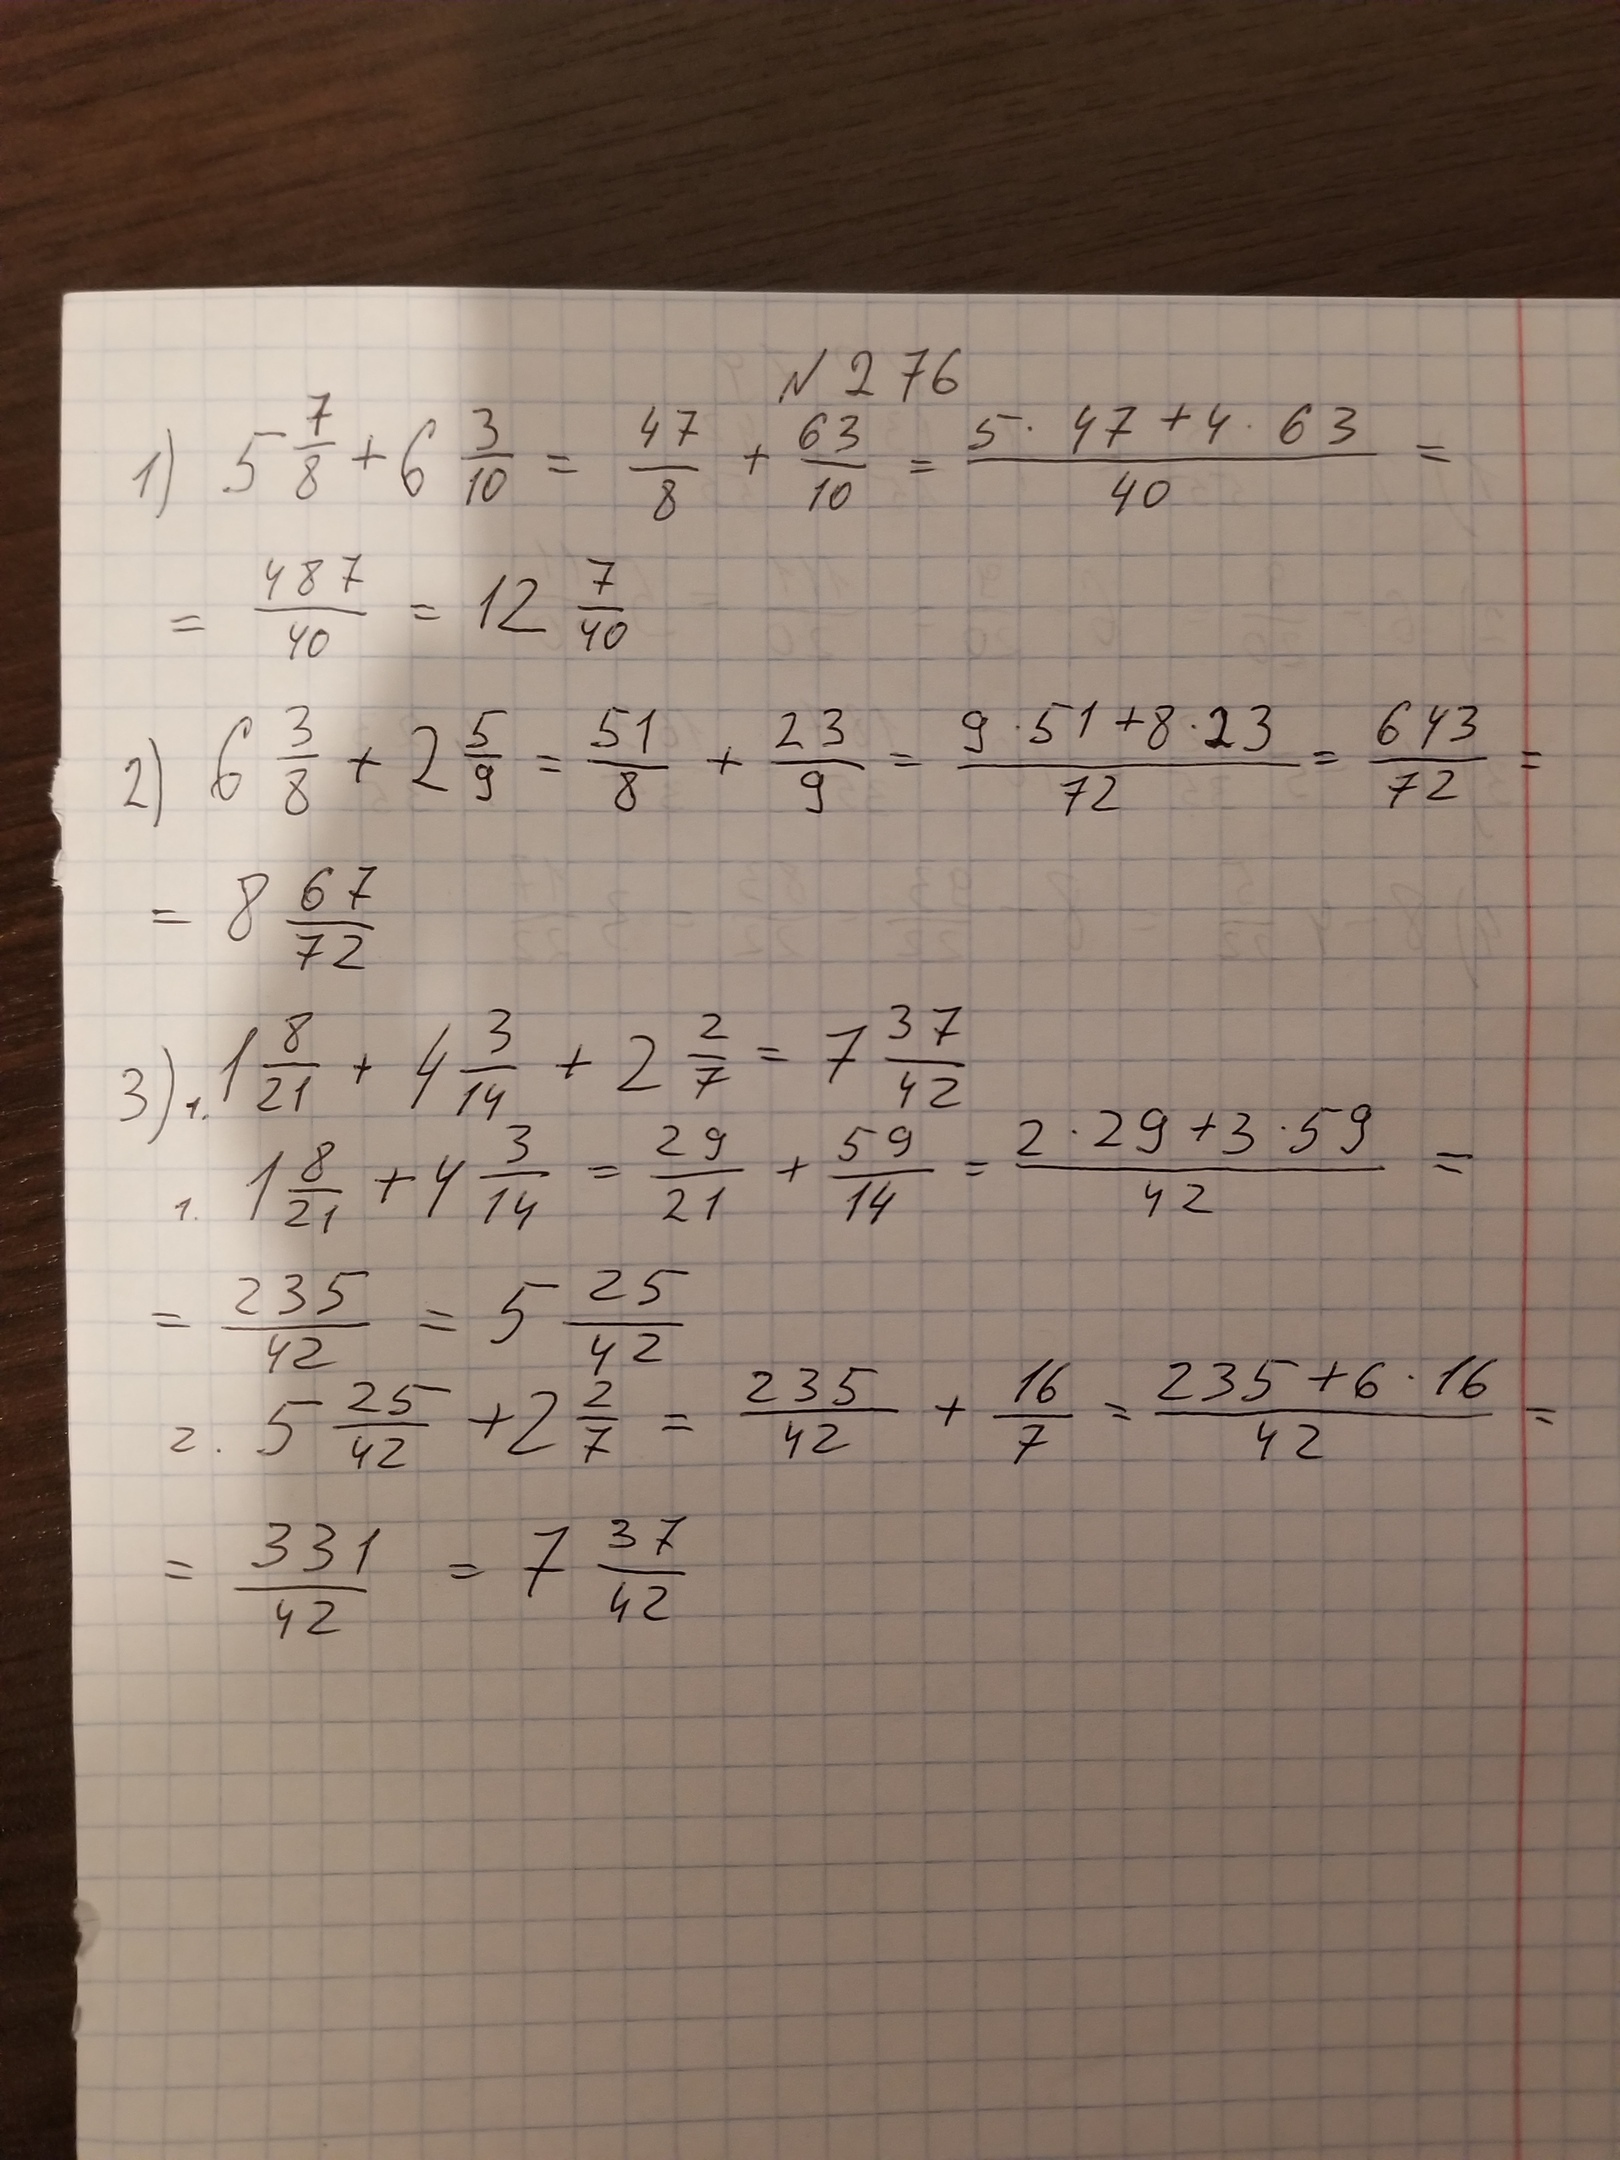 N 276
1) 5 7/8 + 6 3/10 = 47/8 + 63/10 = (5 · 47 + 4 · 63)/40 =
= 487/40 = 12 7/40
2) 6 3/8 + 2 5/9 = 51/8 + 23/9 = (9 · 51 + 8 · 23)/72 = 643/72 =
= 8 67/72
3) 1. 1 8/21 + 4 3/14 + 2 2/7 = 7 37/42
1. 1 8/21 + 4 3/14 = 29/21 + 59/14 = (2 · 29 + 3 · 59)/42 =
= 235/42 = 5 25/42
2. 5 25/42 + 2 2/7 = 235/42 + 16/7 = (235 + 6 · 16)/42 =
= 331/42 = 7 37/42